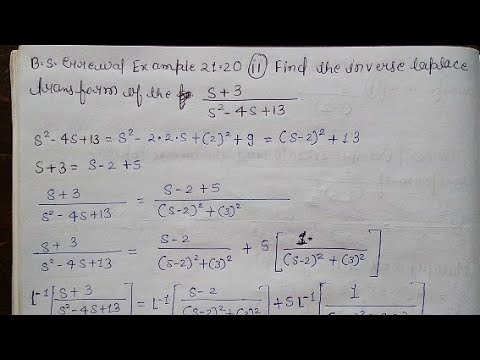 B.S. Grrewal Example 21.20 (ii) Find the inverse laplace
transform of the s+3 / s²-4s+13
s²-4s+13 = s²-2·2·s+(2)²+9 = (s-2)²+13
s+3 = s-2+5
s+3 / s²-4s+13 = s-2+5 / (s-2)²+(3)²
s+3 / s²-4s+13 = s-2 / (s-2)²+(3)² + 5 [ 1 / (s-2)²+(3)² ]
L⁻¹ [ s+3 / s²-4s+13 ] = L⁻¹ [ s-2 / (s-2)²+(3)² ] + 5L⁻¹ [ 1